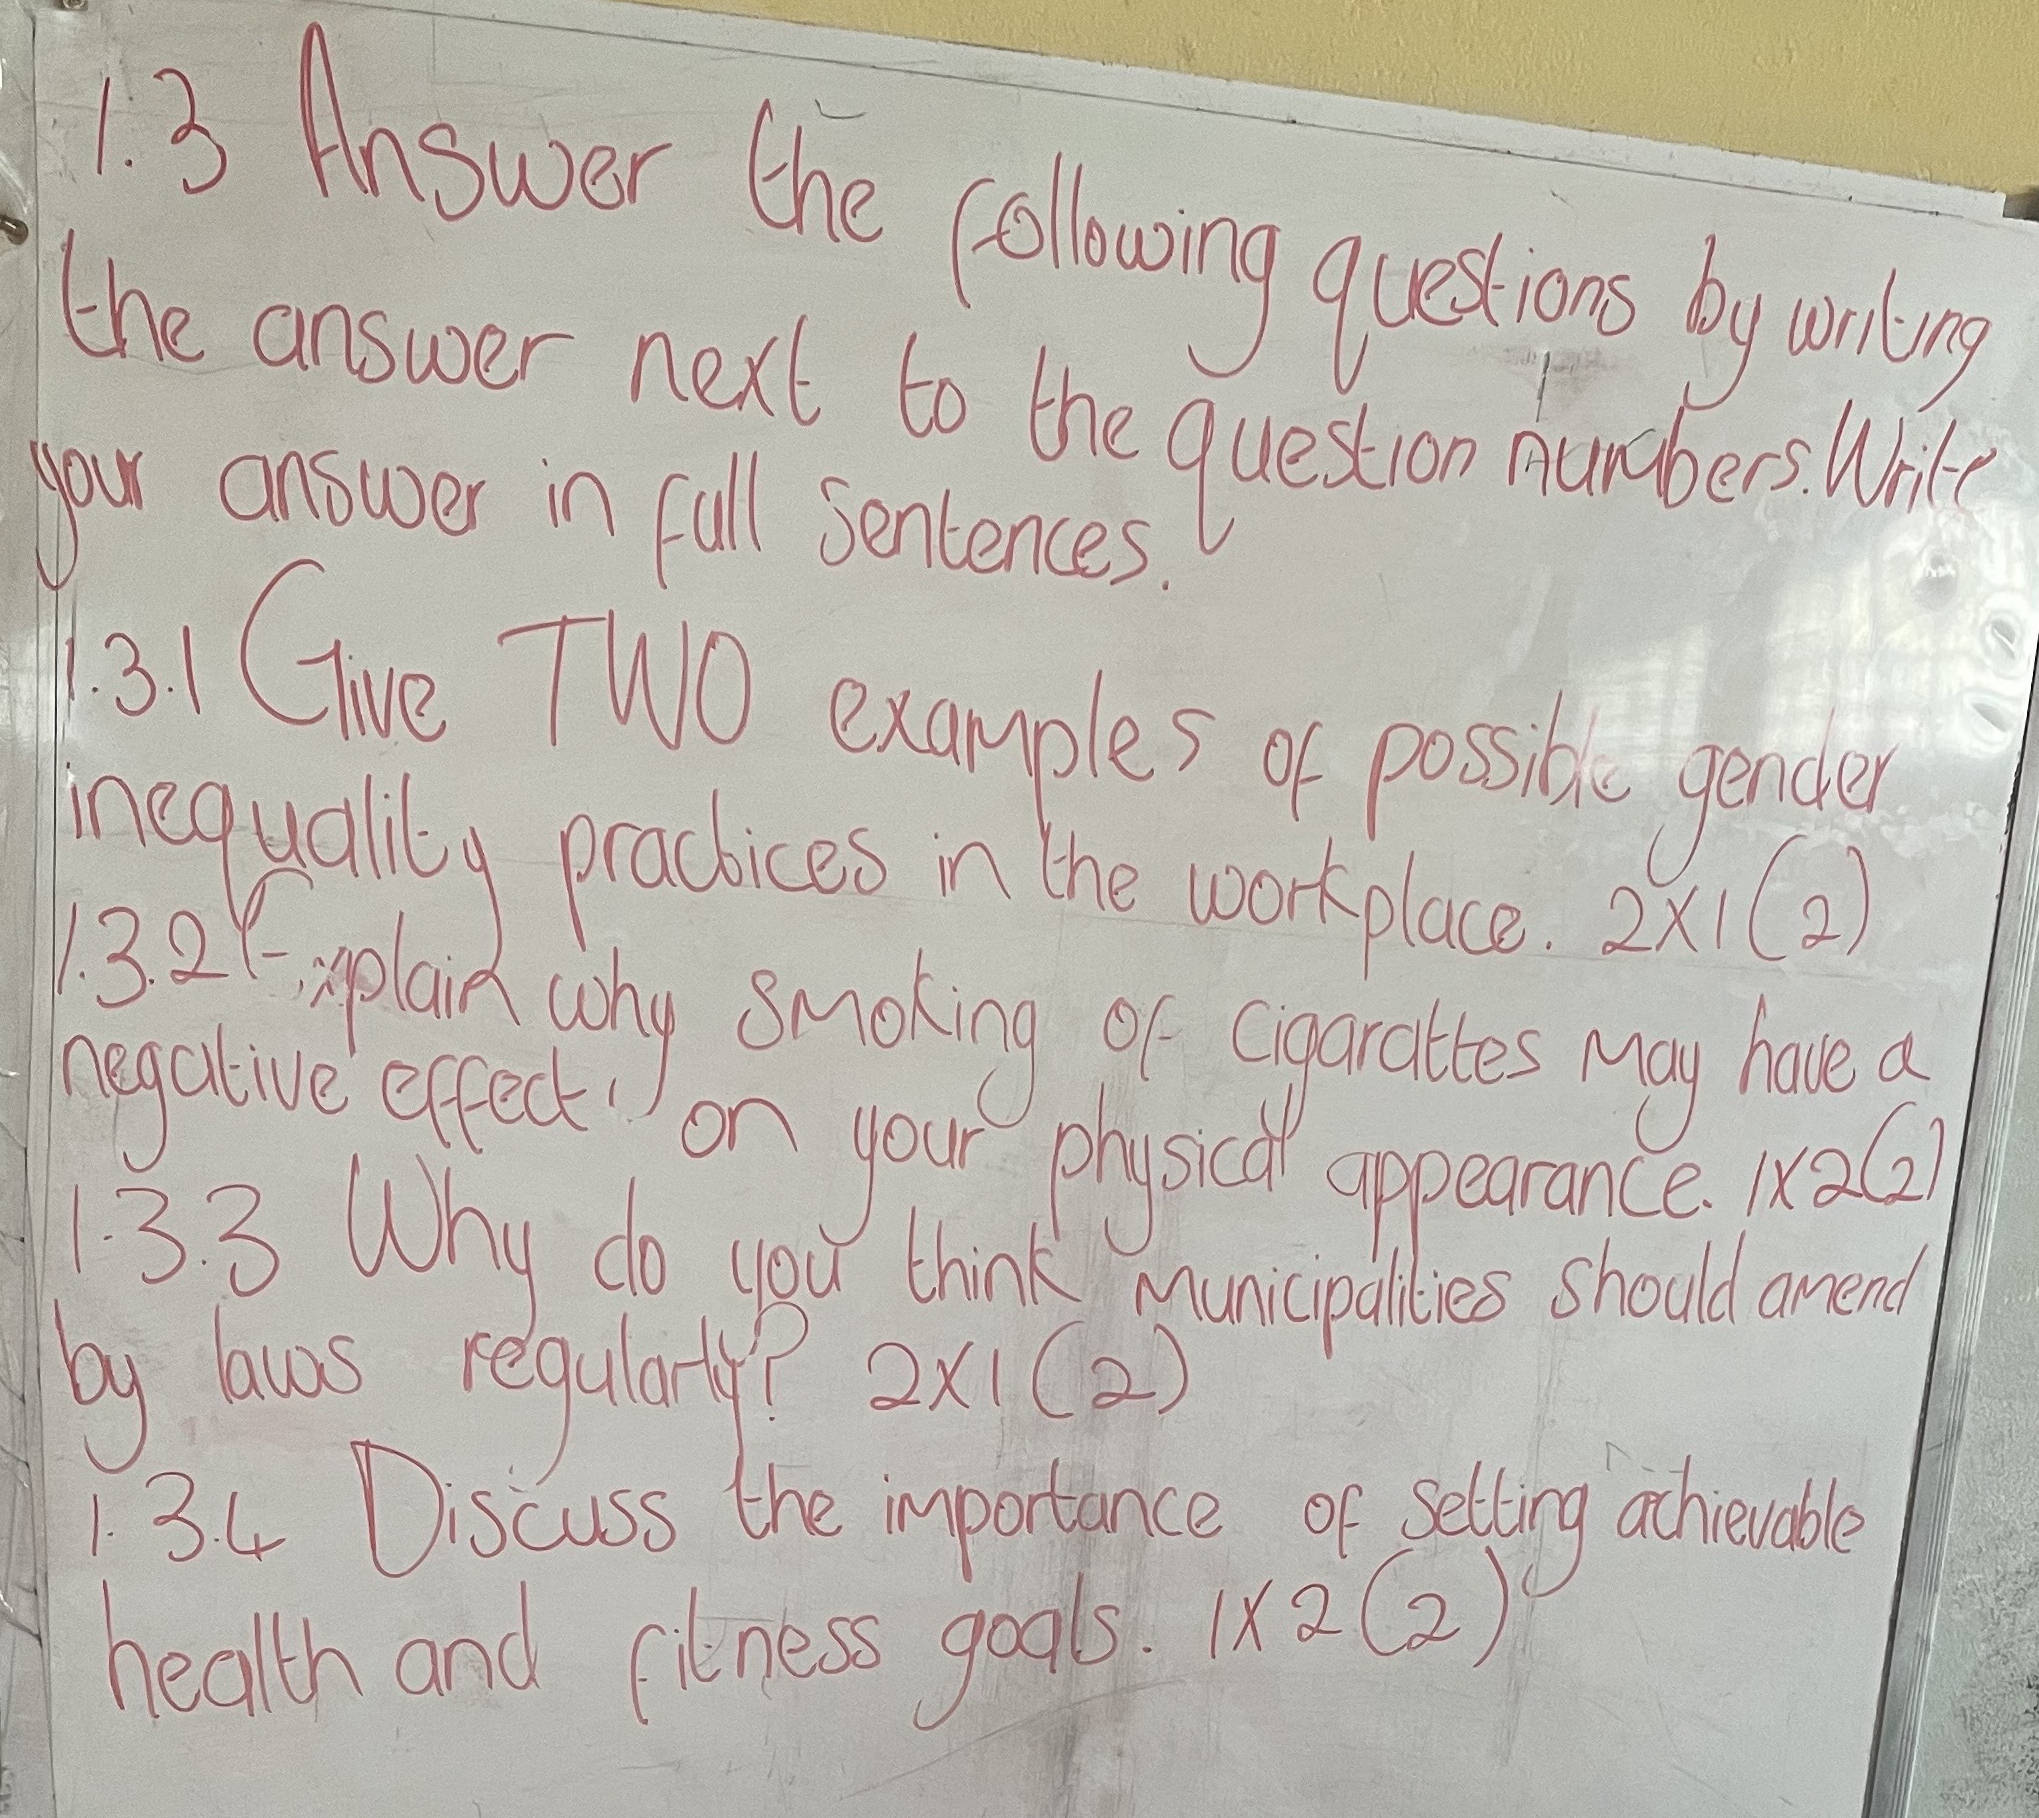 1.3 Answer the following questions by writing
the answer next to the question numbers. Write
your answer in full sentences.
1.3.1 Give TWO examples of possible gender
inequality practices in the workplace. 2x1 (2)
1.3.2 Explain why smoking of cigarattes may have a
negative effect on your physical appearance. 1x2(2)
1.3.3 Why do you think municipalities should amend
by laws regularly? 2x1 (2)
1.3.4 Discuss the importance of setting achievable
health and fitness goals. 1x2 (2)